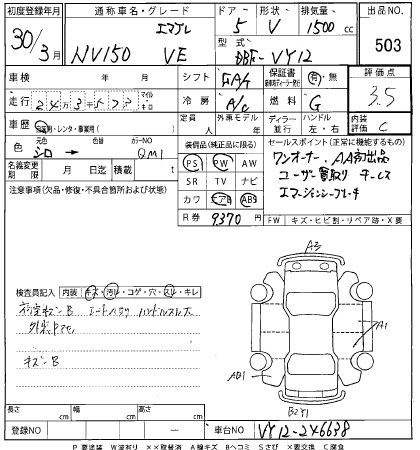 初度登録年月 通称車名・グレード ドア 形状 排気量 出品NO
30年3月 NV150 VE 5 V 1500cc 503
型式 DBF-VY12
車検 年 月 シフト FAT 保証書 有・無 評価点
走行 マイル キロ 冷房 A/C 燃料 G 3.5
車歴 自家用・レンタ・事業用( ) 定員 人 外車モデル 年 ディーラー 並行 ハンドル 左・右 内装評価 C
色 元色 シロ → カラーNO QM1 装備品(純正品に限る) セールスポイント(正常に機能するもの)
名義変更期限 月 日迄 積載 t PS PW AW ワンオーナー、AA初出品
注意事項(欠品・修復・不具合箇所および状態) SR TV ナビ ユーザー買取り
カワ エアB ABS エマージェンシーブレーキ
R券 9370円 FW キズ・ヒビ割・リペア跡・X要
検査員記入 内装 キズ・汚レ・コゲ・穴・スレ・キレ
A3
キズB
A1
AB1
B2Y1
長さ cm 幅 cm 高さ cm
登録NO 車台NO VY12-246638
P要塗装 W波有り ××取替済 A線キズ Bヘコミ Sさび ×要交換 C腐食